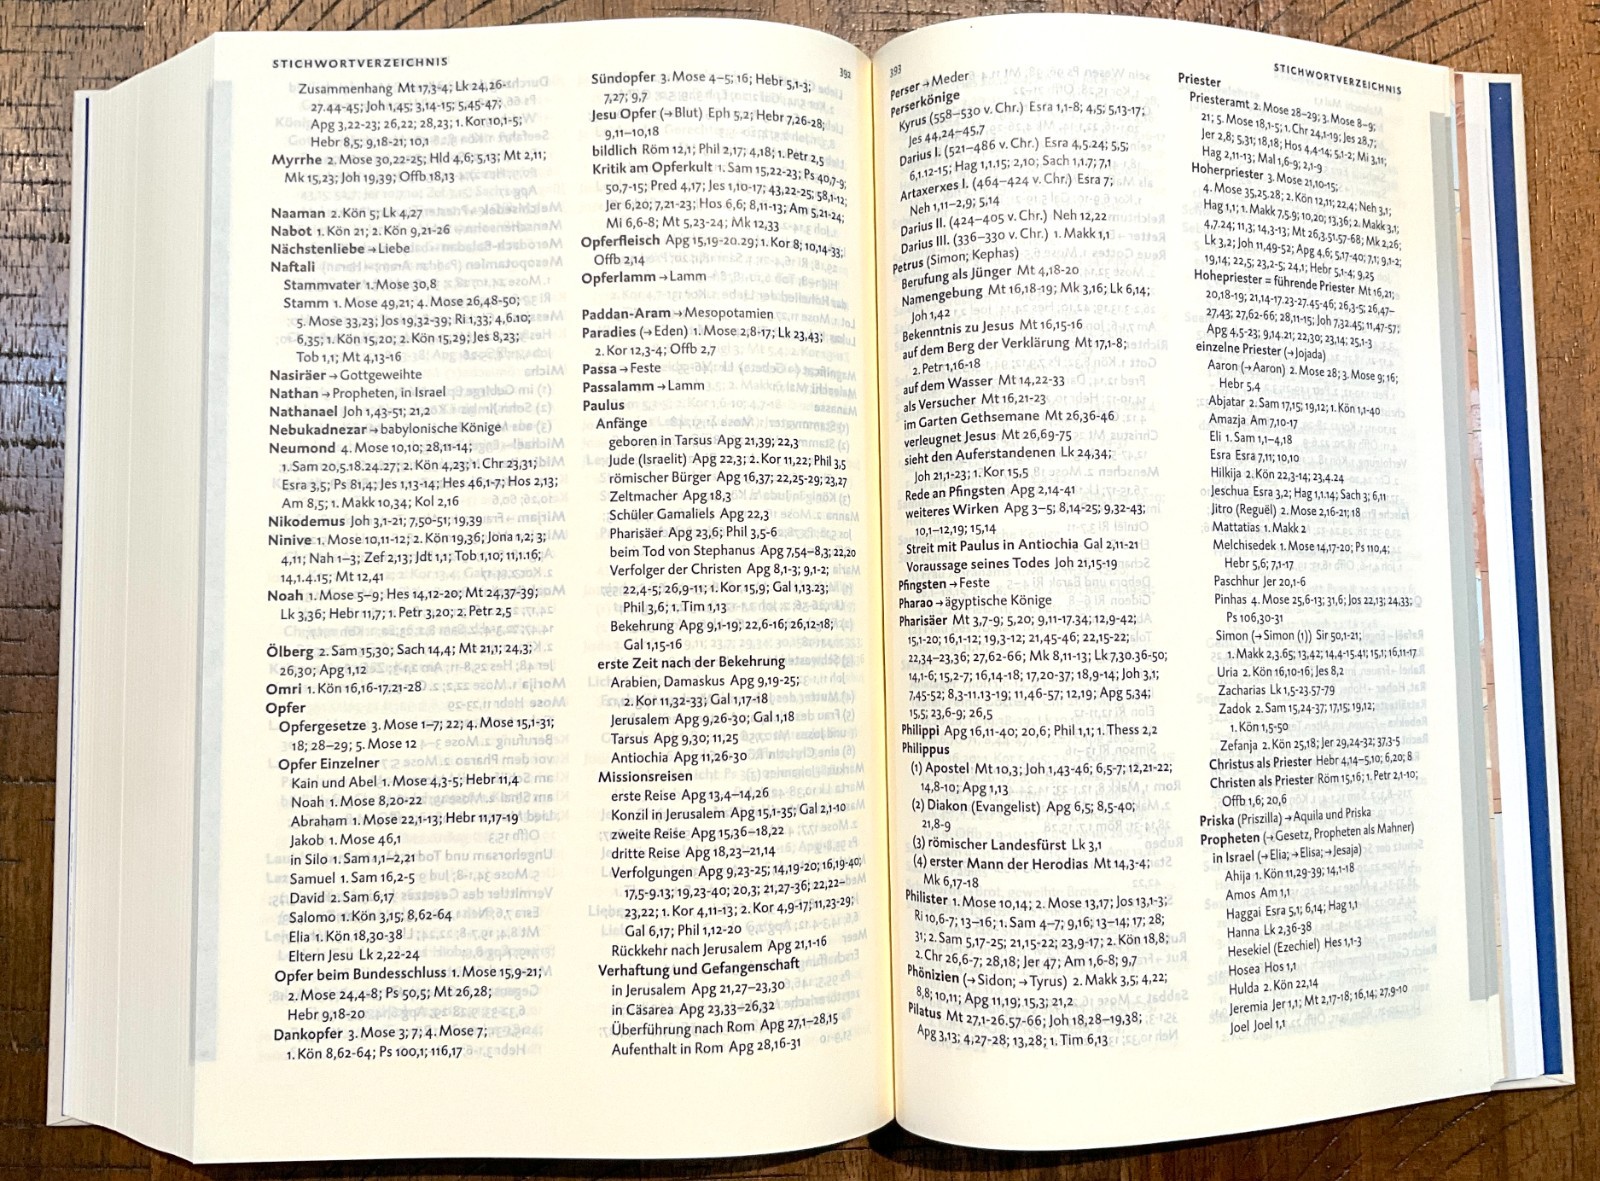 STICHWORTVERZEICHNIS
392
Zusammenhang Mt 17,3-4; Lk 24,26-
27.44-45; Joh 1,45; 3,14-15; 5,45-47;
Apg 3,22-23; 26,22; 28,23; 1. Kor 10,1-5;
Hebr 8,5; 9,18-21; 10,1
Myrrhe 2. Mose 30,22-25; Hld 4,6; 5,13; Mt 2,11;
Mk 15,23; Joh 19,39; Offb 18,13
Naaman 2. Kön 5; Lk 4,27
Nabot 1. Kön 21; 2. Kön 9,21-26
Nächstenliebe → Liebe
Naftali
Stammvater 1. Mose 30,8
Stamm 1. Mose 49,21; 4. Mose 26,48-50;
5. Mose 33,23; Jos 19,32-39; Ri 1,33; 4,6.10;
6,35; 1. Kön 15,20; 2. Kön 15,29; Jes 8,23;
Tob 1,1; Mt 4,13-16
Nasiräer → Gottgeweihte
Nathan → Propheten, in Israel
Nathanael Joh 1,43-51; 21,2
Nebukadnezar → babylonische Könige
Neumond 4. Mose 10,10; 28,11-14;
1. Sam 20,5.18.24.27; 2. Kön 4,23; 1. Chr 23,31;
Esra 3,5; Ps 81,4; Jes 1,13-14; Hes 46,1-7; Hos 2,13;
Am 8,5; 1. Makk 10,34; Kol 2,16
Nikodemus Joh 3,1-21; 7,50-51; 19,39
Ninive 1. Mose 10,11-12; 2. Kön 19,36; Jona 1,2; 3;
4,11; Nah 1–3; Zef 2,13; Jdt 1,1; Tob 1,10; 11,1.16;
14,1.4.15; Mt 12,41
Noah 1. Mose 5–9; Hes 14,12-20; Mt 24,37-39;
Lk 3,36; Hebr 11,7; 1. Petr 3,20; 2. Petr 2,5
Ölberg 2. Sam 15,30; Sach 14,4; Mt 21,1; 24,3;
26,30; Apg 1,12
Omri 1. Kön 16,16-17.21-28
Opfer
Opfergesetze 3. Mose 1–7; 22; 4. Mose 15,1-31;
18; 28–29; 5. Mose 12
Opfer Einzelner
Kain und Abel 1. Mose 4,3-5; Hebr 11,4
Noah 1. Mose 8,20-22
Abraham 1. Mose 22,1-13; Hebr 11,17-19
Jakob 1. Mose 46,1
in Silo 1. Sam 1,1–2,21
Samuel 1. Sam 16,2-5
David 2. Sam 6,17
Salomo 1. Kön 3,15; 8,62-64
Elia 1. Kön 18,30-38
Eltern Jesu Lk 2,22-24
Opfer beim Bundesschluss 1. Mose 15,9-21;
2. Mose 24,4-8; Ps 50,5; Mt 26,28;
Hebr 9,18-20
Dankopfer 3. Mose 3; 7; 4. Mose 7;
1. Kön 8,62-64; Ps 100,1; 116,17
Sündopfer 3. Mose 4–5; 16; Hebr 5,1-3;
7,27; 9,7
Jesu Opfer (→ Blut) Eph 5,2; Hebr 7,26-28;
9,11–10,18
bildlich Röm 12,1; Phil 2,17; 4,18; 1. Petr 2,5
Kritik am Opferkult 1. Sam 15,22-23; Ps 40,7-9;
50,7-15; Pred 4,17; Jes 1,10-17; 43,22-25; 58,1-12;
Jer 6,20; 7,21-23; Hos 6,6; 8,11-13; Am 5,21-24;
Mi 6,6-8; Mt 5,23-24; Mk 12,33
Opferfleisch Apg 15,19-20.29; 1. Kor 8; 10,14-33;
Offb 2,14
Opferlamm → Lamm
Paddan-Aram → Mesopotamien
Paradies (→ Eden) 1. Mose 2,8-17; Lk 23,43;
2. Kor 12,3-4; Offb 2,7
Passa → Feste
Passalamm → Lamm
Paulus
Anfänge
geboren in Tarsus Apg 21,39; 22,3
Jude (Israelit) Apg 22,3; 2. Kor 11,22; Phil 3,5
römischer Bürger Apg 16,37; 22,25-29; 23,27
Zeltmacher Apg 18,3
Schüler Gamaliels Apg 22,3
Pharisäer Apg 23,6; Phil 3,5-6
beim Tod von Stephanus Apg 7,54–8,3; 22,20
Verfolger der Christen Apg 8,1-3; 9,1-2;
22,4-5; 26,9-11; 1. Kor 15,9; Gal 1,13.23;
Phil 3,6; 1. Tim 1,13
Bekehrung Apg 9,1-19; 22,6-16; 26,12-18;
Gal 1,15-16
erste Zeit nach der Bekehrung
Arabien, Damaskus Apg 9,19-25;
2. Kor 11,32-33; Gal 1,17-18
Jerusalem Apg 9,26-30; Gal 1,18
Tarsus Apg 9,30; 11,25
Antiochia Apg 11,26-30
Missionsreisen
erste Reise Apg 13,4–14,26
Konzil in Jerusalem Apg 15,1-35; Gal 2,1-10
zweite Reise Apg 15,36–18,22
dritte Reise Apg 18,23–21,14
Verfolgungen Apg 9,23-25; 14,19-20; 16,19-40;
17,5-9.13; 19,23-40; 20,3; 21,27-36; 22,22–
23,22; 1. Kor 4,11-13; 2. Kor 4,9-17; 11,23-29;
Gal 6,17; Phil 1,12-20
Rückkehr nach Jerusalem Apg 21,1-16
Verhaftung und Gefangenschaft
in Jerusalem Apg 21,27–23,30
in Cäsarea Apg 23,33–26,32
Überführung nach Rom Apg 27,1–28,15
Aufenthalt in Rom Apg 28,16-31
393
STICHWORTVERZEICHNIS
Perser → Meder
Perserkönige
Kyrus (558–530 v. Chr.) Esra 1,1-8; 4,5; 5,13-17;
Jes 44,24–45,7
Darius I. (521–486 v. Chr.) Esra 4,5.24; 5,5;
6,1.12-15; Hag 1,1.15; 2,10; Sach 1,1.7; 7,1
Artaxerxes I. (464–424 v. Chr.) Esra 7;
Neh 1,11–2,9; 5,14
Darius II. (424–405 v. Chr.) Neh 12,22
Darius III. (336–330 v. Chr.) 1. Makk 1,1
Petrus (Simon; Kephas)
Berufung als Jünger Mt 4,18-20
Namengebung Mt 16,18-19; Mk 3,16; Lk 6,14;
Joh 1,42
Bekenntnis zu Jesus Mt 16,15-16
auf dem Berg der Verklärung Mt 17,1-8;
2. Petr 1,16-18
auf dem Wasser Mt 14,22-33
als Versucher Mt 16,21-23
im Garten Gethsemane Mt 26,36-46
verleugnet Jesus Mt 26,69-75
sieht den Auferstandenen Lk 24,34;
Joh 21,1-23; 1. Kor 15,5
Rede an Pfingsten Apg 2,14-41
weiteres Wirken Apg 3–5; 8,14-25; 9,32-43;
10,1–12,19; 15,14
Streit mit Paulus in Antiochia Gal 2,11-21
Voraussage seines Todes Joh 21,15-19
Pfingsten → Feste
Pharao → ägyptische Könige
Pharisäer Mt 3,7-9; 5,20; 9,11-17.34; 12,9-42;
15,1-20; 16,1-12; 19,3-12; 21,45-46; 22,15-22;
22,34–23,36; 27,62-66; Mk 8,11-13; Lk 7,30.36-50;
14,1-6; 15,2-7; 16,14-18; 17,20-37; 18,9-14; Joh 3,1;
7,45-52; 8,3-11.13-19; 11,46-57; 12,19; Apg 5,34;
15,5; 23,6-9; 26,5
Philippi Apg 16,11-40; 20,6; Phil 1,1; 1. Thess 2,2
Philippus
(1) Apostel Mt 10,3; Joh 1,43-46; 6,5-7; 12,21-22;
14,8-10; Apg 1,13
(2) Diakon (Evangelist) Apg 6,5; 8,5-40;
21,8-9
(3) römischer Landesfürst Lk 3,1
(4) erster Mann der Herodias Mt 14,3-4;
Mk 6,17-18
Philister 1. Mose 10,14; 2. Mose 13,17; Jos 13,1-3;
Ri 10,6-7; 13–16; 1. Sam 4–7; 9,16; 13–14; 17; 28;
31; 2. Sam 5,17-25; 21,15-22; 23,9-17; 2. Kön 18,8;
2. Chr 26,6-7; 28,18; Jer 47; Am 1,6-8; 9,7
Phönizien (→ Sidon; → Tyrus) 2. Makk 3,5; 4,22;
8,8; 10,11; Apg 11,19; 15,3; 21,2
Pilatus Mt 27,1-26.57-66; Joh 18,28–19,38;
Apg 3,13; 4,27-28; 13,28; 1. Tim 6,13
Priester
Priesteramt 2. Mose 28–29; 3. Mose 8–9;
21; 5. Mose 18,1-5; 1. Chr 24,1-19; Jes 28,7;
Jer 2,8; 5,31; 18,18; Hos 4,4-14; 5,1-2; Mi 3,11;
Hag 2,11-13; Mal 1,6–9; 2,1-9
Hoherpriester 3. Mose 21,10-15;
4. Mose 35,25.28; 2. Kön 12,11; 22,4; Neh 3,1;
Hag 1,1; 1. Makk 7,5-9; 10,20; 13,36; 2. Makk 3,1;
4,7.24; 11,3; 14,3-13; Mt 26,3.51.57-68; Mk 2,26;
Lk 3,2; Joh 11,49-52; Apg 4,6; 5,17-40; 7,1; 9,1-2;
19,14; 22,5; 23,2-5; 24,1; Hebr 5,1-4; 9,25
Hohepriester = führende Priester Mt 16,21;
20,18-19; 21,14-17.23-27.45-46; 26,3-5; 26,47–
27,43; 27,62-66; 28,11-15; Joh 7,32.45; 11,47-57;
Apg 4,5-23; 9,14.21; 22,30; 23,14; 25,1-3
einzelne Priester (→ Jojada)
Aaron (→ Aaron) 2. Mose 28; 3. Mose 9; 16;
Hebr 5,4
Abjatar 2. Sam 17,15; 19,12; 1. Kön 1,1-40
Amazja Am 7,10-17
Eli 1. Sam 1,1–4,18
Esra Esra 7,11; 10,10
Hilkija 2. Kön 22,3-14; 23,4.24
Jeschua Esra 3,2; Hag 1,1.14; Sach 3; 6,11
Jitro (Reguël) 2. Mose 2,16-21; 18
Mattatias 1. Makk 2
Melchisedek 1. Mose 14,17-20; Ps 110,4;
Hebr 5,6; 7,1-17
Paschhur Jer 20,1-6
Pinhas 4. Mose 25,6-13; 31,6; Jos 22,13; 24,33;
Ps 106,30-31
Simon (→ Simon (1)) Sir 50,1-21;
1. Makk 2,3.65; 13,42; 14,4-15.41; 15,1; 16,11-17
Uria 2. Kön 16,10-16; Jes 8,2
Zacharias Lk 1,5-23.57-79
Zadok 2. Sam 15,24-37; 17,15; 19,12;
1. Kön 1,5-50
Zefanja 2. Kön 25,18; Jer 29,24-32; 37,3-5
Christus als Priester Hebr 4,14–5,10; 6,20; 8
Christen als Priester Röm 15,16; 1. Petr 2,1-10;
Offb 1,6; 20,6
Priska (Priszilla) → Aquila und Priska
Propheten (→ Gesetz, Propheten als Mahner)
in Israel (→ Elia; → Elisa; → Jesaja)
Ahija 1. Kön 11,29-39; 14,1-18
Amos Am 1,1
Haggai Esra 5,1; 6,14; Hag 1,1
Hanna Lk 2,36-38
Hesekiel (Ezechiel) Hes 1,1-3
Hosea Hos 1,1
Hulda 2. Kön 22,14
Jeremia Jer 1,1; Mt 2,17-18; 16,14; 27,9-10
Joel Joel 1,1